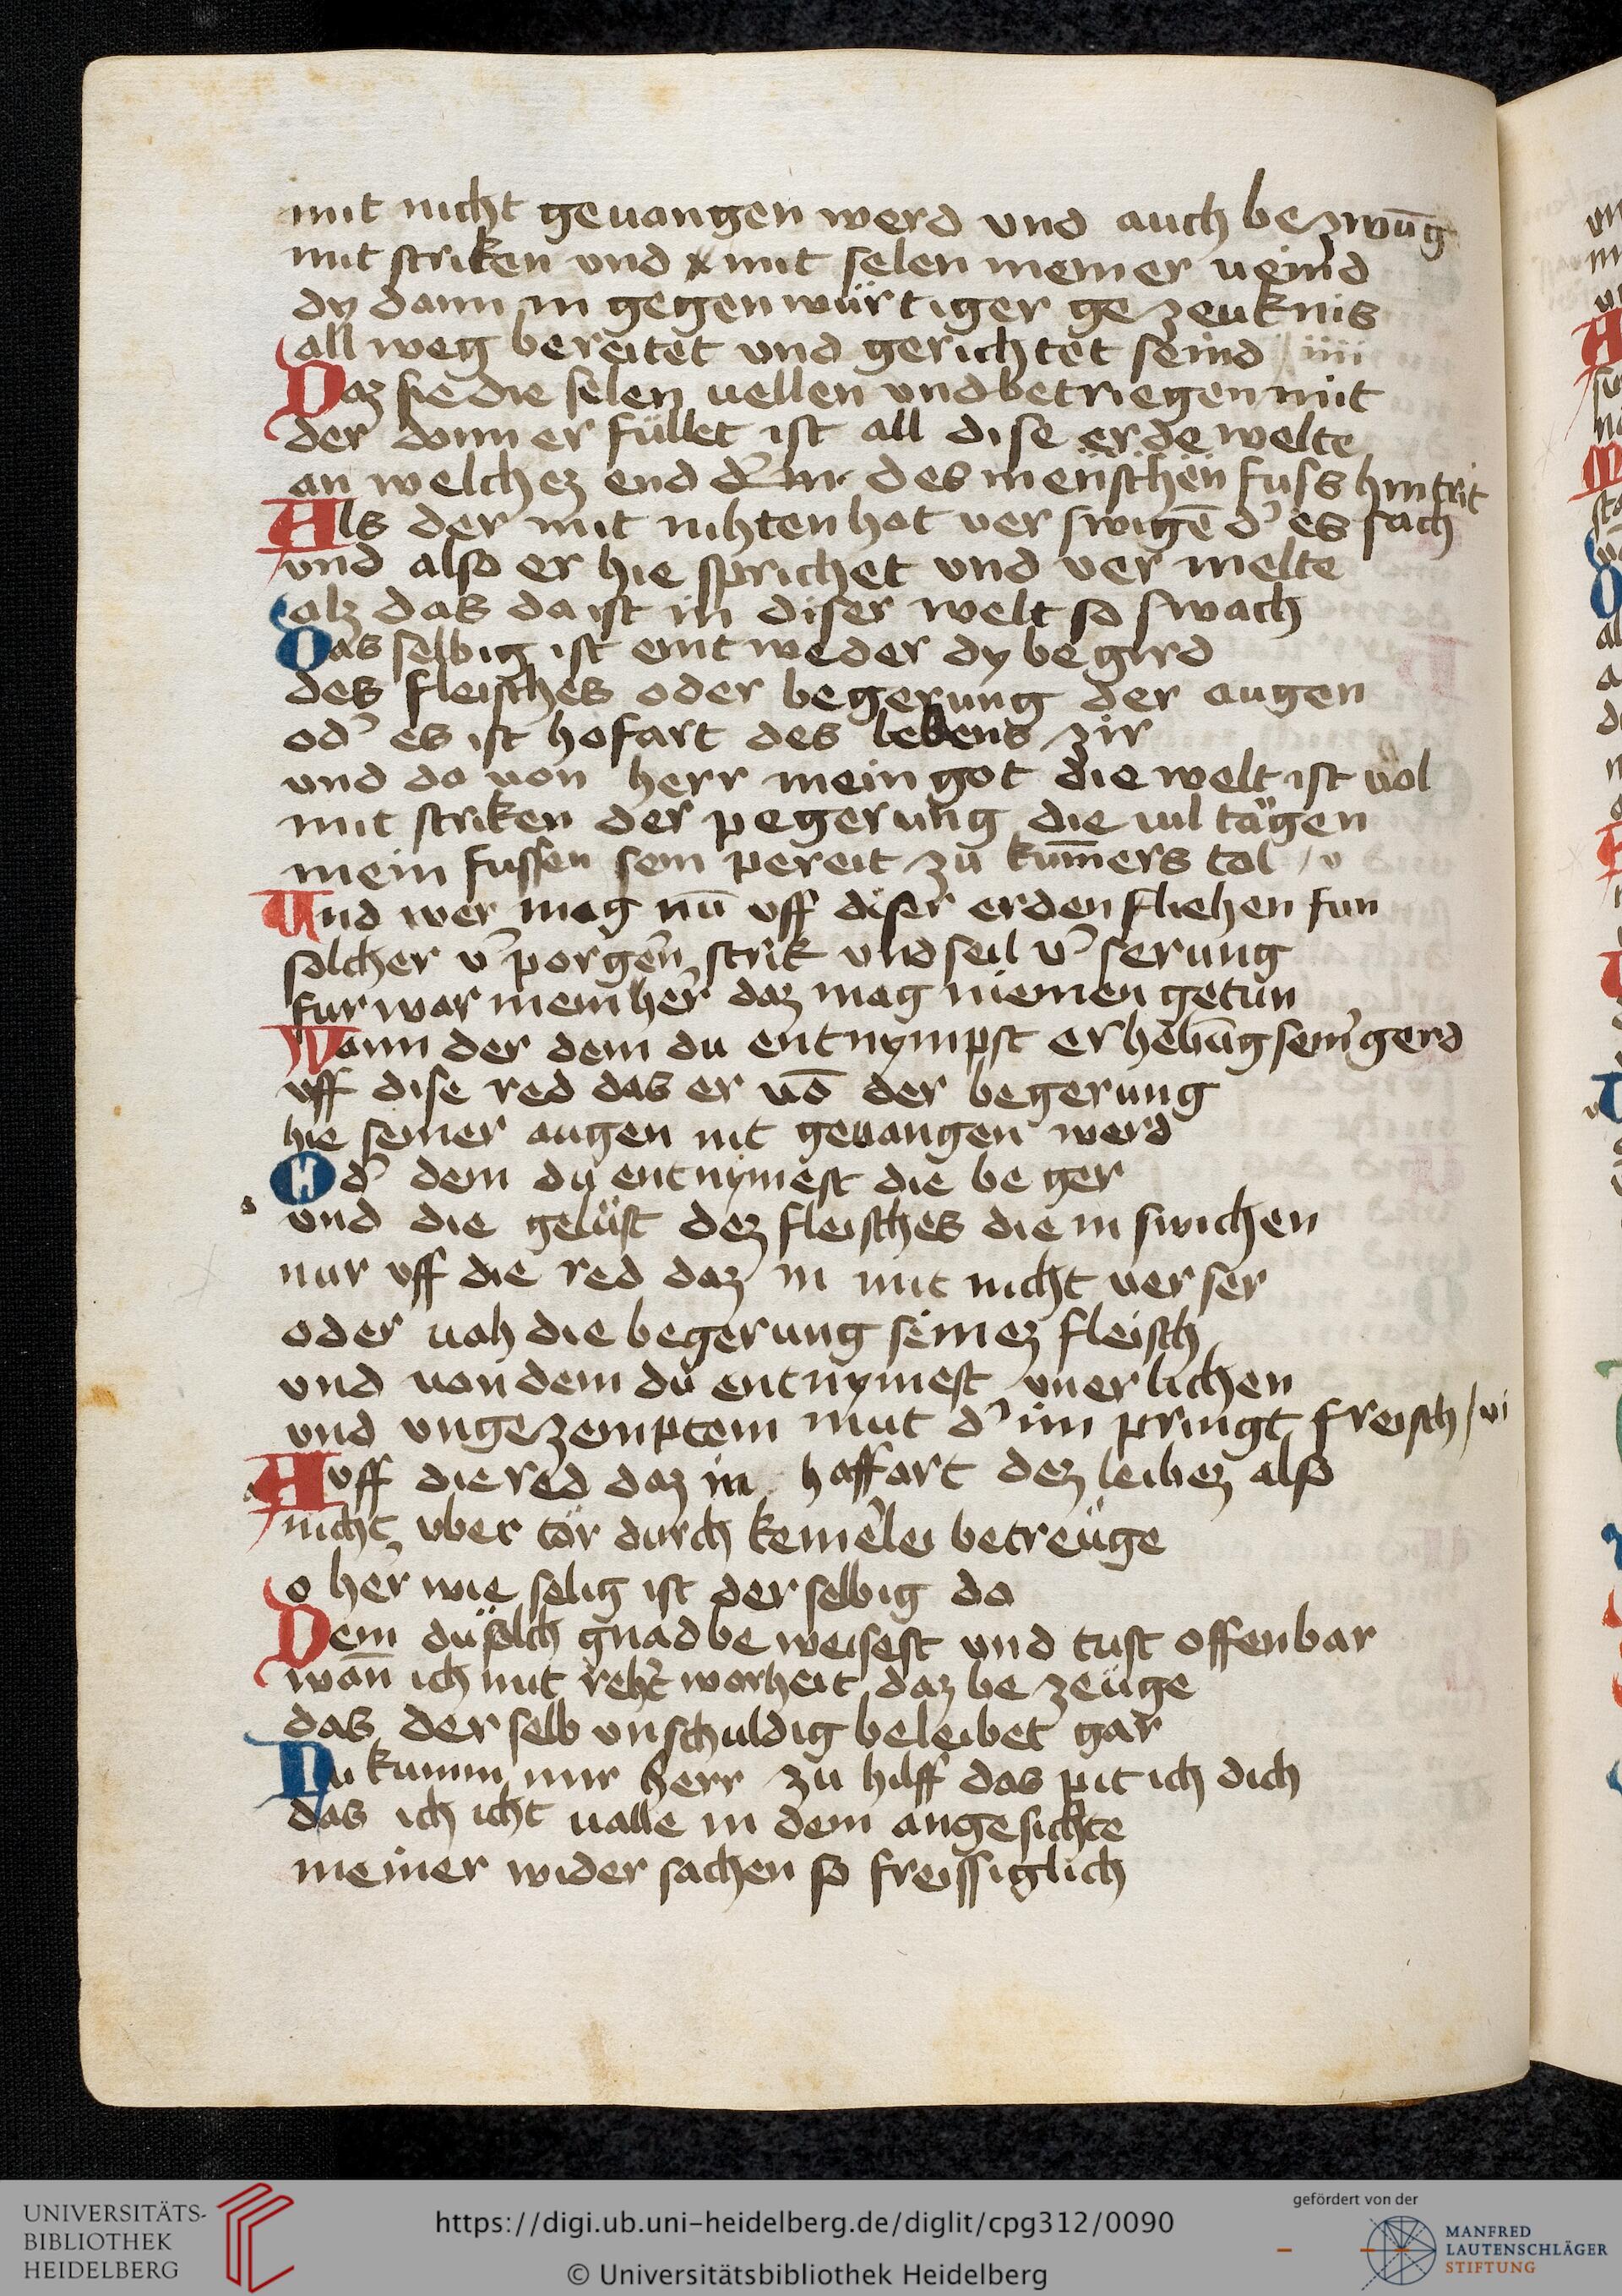 mit nicht geuangen werd vnd auch bezwūg
mit striken vnd mit selen meiner ueind
dy dann in gegenwürtiger gezeuknis
allweg bereitet vnd gerichtet seind iiii
Daz sie die selen uellen vnd betriegen mit
der donn erfüllet ist all dise erde welte
an welchez end des menschen fuss hintrit
Als der mit nihten hat verswigē d' es sach
vnd also er hie sprichet vnd vermelte
alz das da ist in diser welt so swach
Das selbig ist eintweder dy begird
des fleisches oder begerung der augen
od' es ist hofart des lebens zir
vnd da uon herr mein got die welt ist uol
mit striken der pegerung die uil tägen
mein fussen sein pereit zu kum̄ers tal / v
Und wer mag nū vff diser erden fliehen fun
solcher v'porgen strik vnd seil v'serung
fur war mein her daz mag niemen getun
Wann der dem du entnympst erhebūg sein' gerd
vff dise red das er uō der begerung
hie seiner augen nit geuangen werd
Od' dem du entnymest die beger
vnd die gelüst dez fleisches die in swichen
nur vff die red daz in mit nicht verser
oder uah die begerung seinez fleisch
vnd uon dem du entnymest vnerlichen
vnd vngezemptem mut d' im pringt freisch / vi
Auff die red daz in hoffart dez leibez also
nicht vber tör durch keinerlei betreüge
o her wie selig ist der selbig do
Dem du sölch gnad beweisest vnd tust offenbar
wan̄ ich mit reht' worheit daz bezeüge
das der selb vnschuldig beleibet gar
Nu kumm mir herr zu hilff das pit ich dich
das ich icht ualle in dem angesichte
meiner widersachen so freissiglich
UNIVERSITÄTS-
BIBLIOTHEK
HEIDELBERG
https://digi.ub.uni-heidelberg.de/diglit/cpg312/0090
© Universitätsbibliothek Heidelberg
gefördert von der
MANFRED
LAUTENSCHLÄGER
STIFTUNG